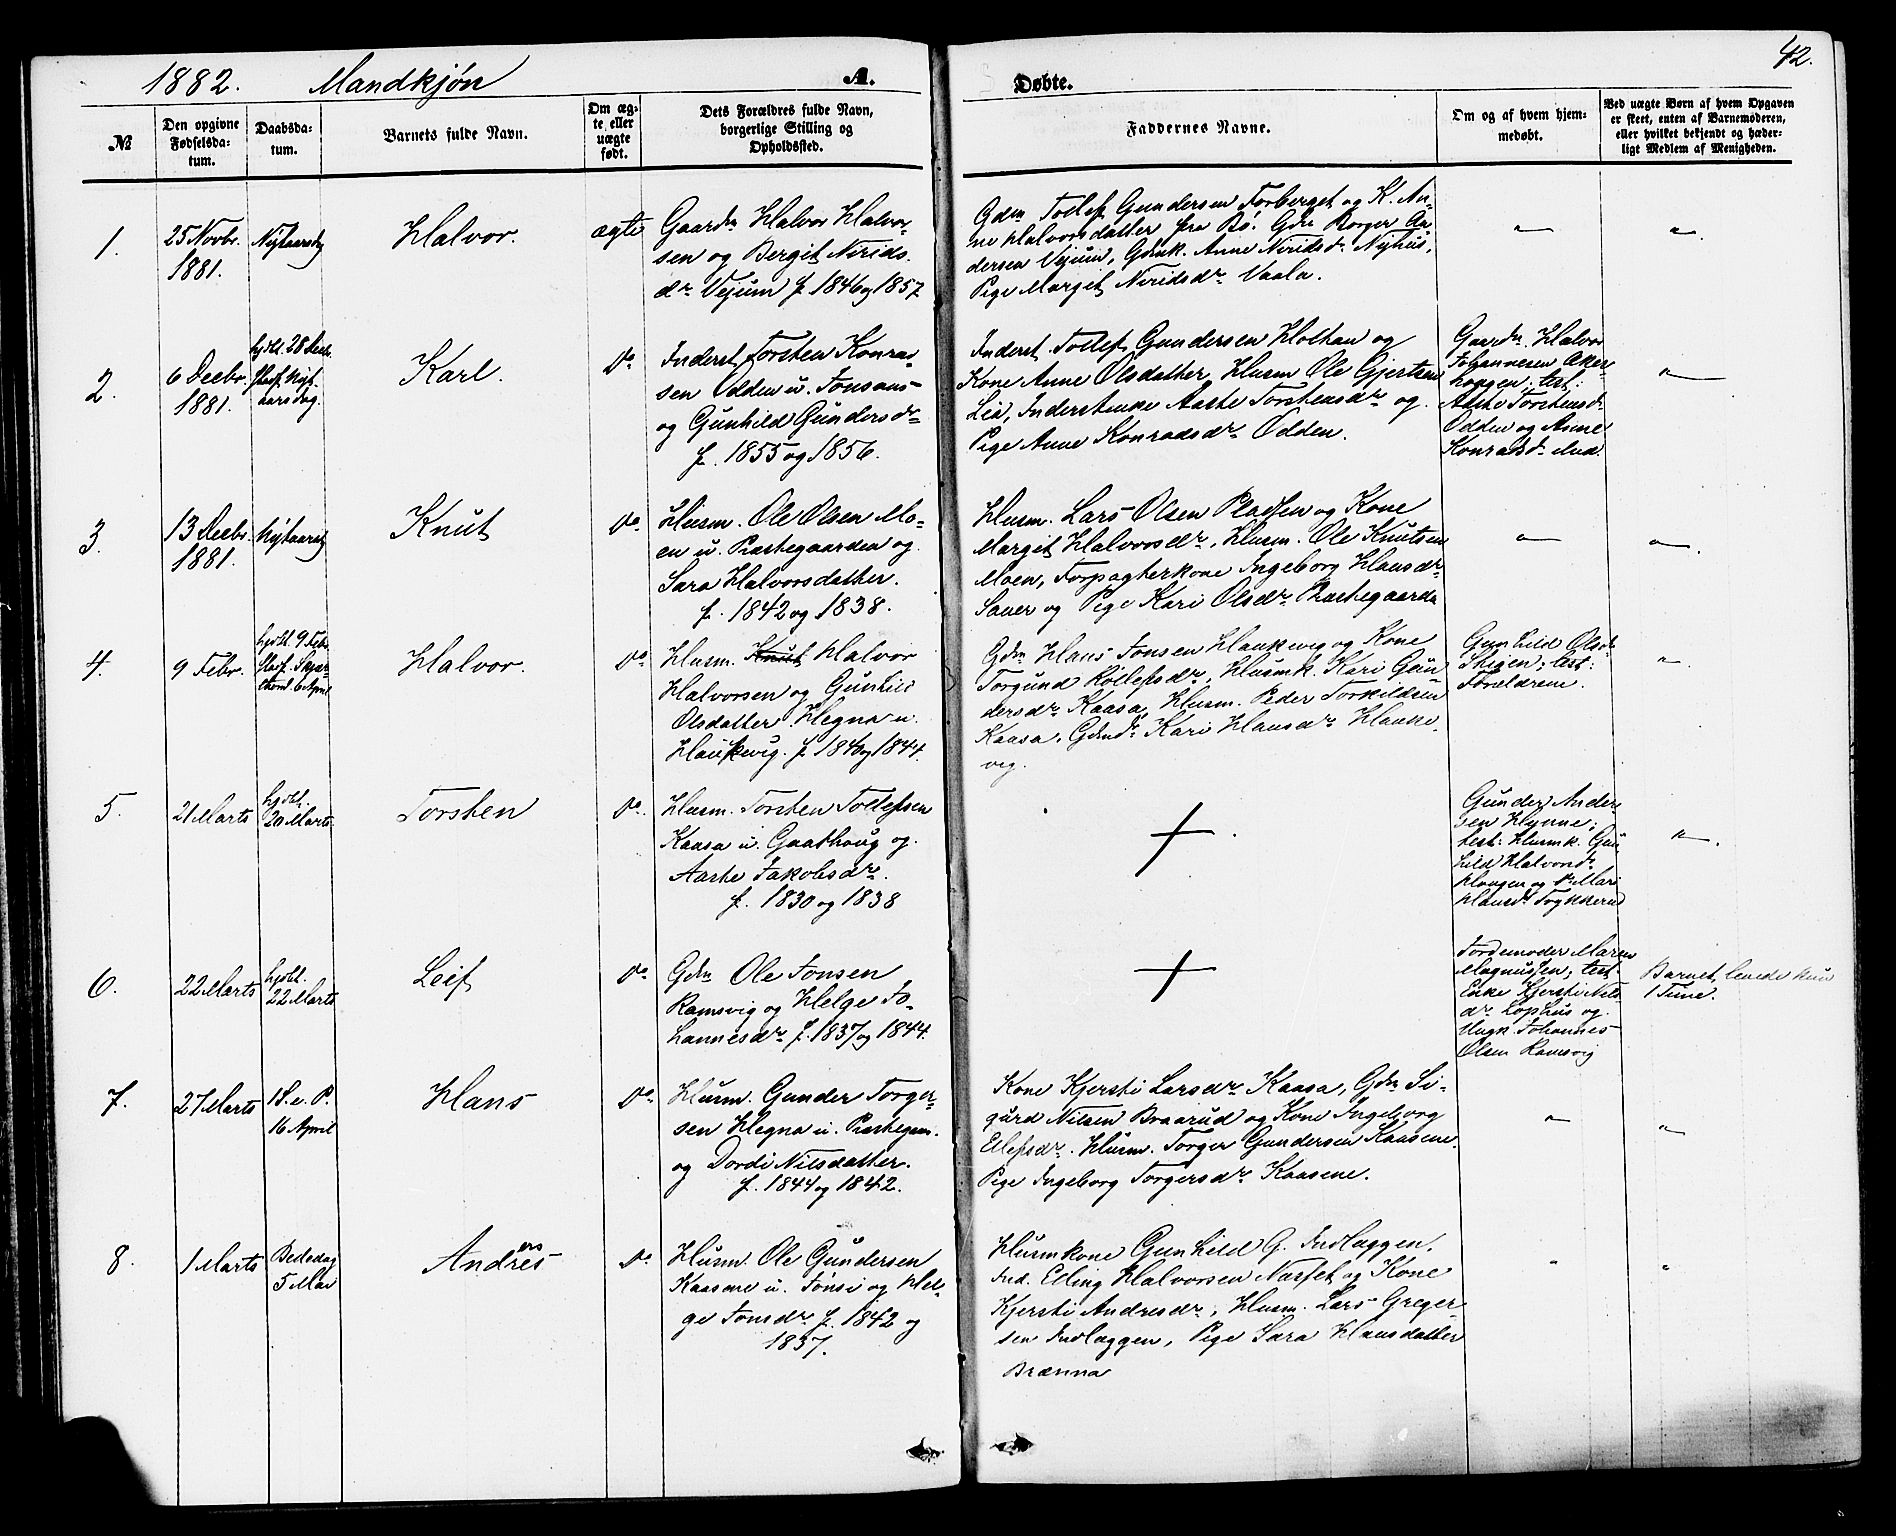 1882. Mandkjøn A. Døbte. 42.
№
Den opgivne Fødselsda-tum.
Daabsda-tum.
Barnets fulde Navn.
Om æg-te eller uægte født.
Dets Forældres fulde Navn, borgerlige Stilling og Opholdssted.
Faddernes Navne.
Om og af hvem hjem-medøbt.
Ved uægte Børn af hvem Opgaven er skeet, enten af Barnemoderen, eller hvilket bekjendt og hæder-ligt Medlem af Menigheden.
1.
25 Novbr.
1881.
Nytaarsdg
Halvor.
ægte
Gaardm Halvor Halvor-
sen og Bergit Nirids-
dr Vejum f. 1846 og 1857
Gdm Tollef Gundersen Forberget og K. An-
ne Halvorsdatter fra Bø. Gdm Borger An-
dersen Vejum, Gdmk. Anne Niridsdr Nyhus,
Pige Marget Niridsdr Vaala.
"
".
2.
6 Decbr.
1881.
hjdbt. 28 Decb.
Stadf. Nyt-
aarsdag.
Karl.
do
Inderst Torsten Konrad-
sen Odden u. Jonsaas
og Gunhild Gundersdr
f. 1855 og 1856.
Inderst. Tollef Gundersen Holtan og
Kone Anne Olsdatter, Husm Ole Gjertsen
Lia, Inderstenke Aaste Torstensdr og
Pige Anne Konradsdr Odden.
Gaardm. Halvor
Johannesen Aker-
haagen; test:
Aaste Torstensdr
Odden og Anne
Konradsdr ibid.
"
3.
13 Decbr.
1881.
Nytaarsdg
Knut
do
Husm. Ole Olsen Mo-
en u. Præstegaarden og
Sara Halvorsdatter.
f. 1842 og 1838.
Husm. Lars Olsen Pladsen og Kone
Margit Halvorsdr, Husm. Ole Knutsen
Moen, Forpagterkone Ingeborg Hansdr
Sauer og Pige Kari Olsdr Præstegaarden
"
".
4.
9 Febr.
hjdbt. 9 Febr.
Stadf. Skjær-
thorsd. 6 April
Halvor.
do
Husm. Knut Halvor
Halvorsen og Gunhild
Olsdatter Hegna u.
Haukevig. f. 1846 og 1844.
Gdm Hans Jonsen Haukevig og Kone
Torgund Rollefsdr, Husmk. Kari Gun-
dersdr Kaasa, Husm. Peder Torkildsen
Kaasa, Gdmdr Kari Hansdr Hauke-
vig.
Gunhild Olsdr
Stigen; test:
Forældrene.
".
5.
21 Marts
hjdbt.
20 Marts
Torsten
do.
Husm. Torsten Tollefsen
Kaasa u. Gaathoug og
Aaste Jakobsdr.
f. 1830 og 1838
+
Gunder Ander-
sen Hynne;
test: Husmk. Gun-
hild Halvorsdr
Haugen og P. Mari
Hansdr
".
6.
22 Marts
hjdbt.
22 Marts
Leif
do
Gdm Ole Jonsen
Ramsvig og Helge Jo-
hannesdr f. 1837 og 1844.
+
Jordemoder Maren
Magnussen; test:
Enke Kjersti Nils-
dr Lophus og
Ungk. Johannes
Olsen Ramsvig
Barnet levede kun
1 Time.
7.
27 Marts
1 S. e. P.
16 April
Hans
do.
Husm. Gunder Torger-
sen Hegna u. Præstegaar.
og Dordi Nilsdatter.
f. 1844 og 1842.
Kone Kjersti Larsdr Kaasa, Gdm Si-
gurd Nilsen Braarud og Kone Ingeborg
Ellefsdr. Husm. Torger Gundersen Kaasene
Pige Ingeborg Torgersdr Kaasene.
"
"
8.
1 Marts
Bededag
5 Mai
Andres
ers
do
Husm. Ole Gundersen
Kaasene u. Jønsi og Hel-
ge Jonsdr f. 1842 og
1837.
Husmkone Gunhild G. Indlæggen.
Ind. Elling Halvorsen Næset og Kone
Kjersti Andresdr, Husm. Lars Greger-
sen Indlæggen, Pige Sara Hansdatter
Brænna
"
"